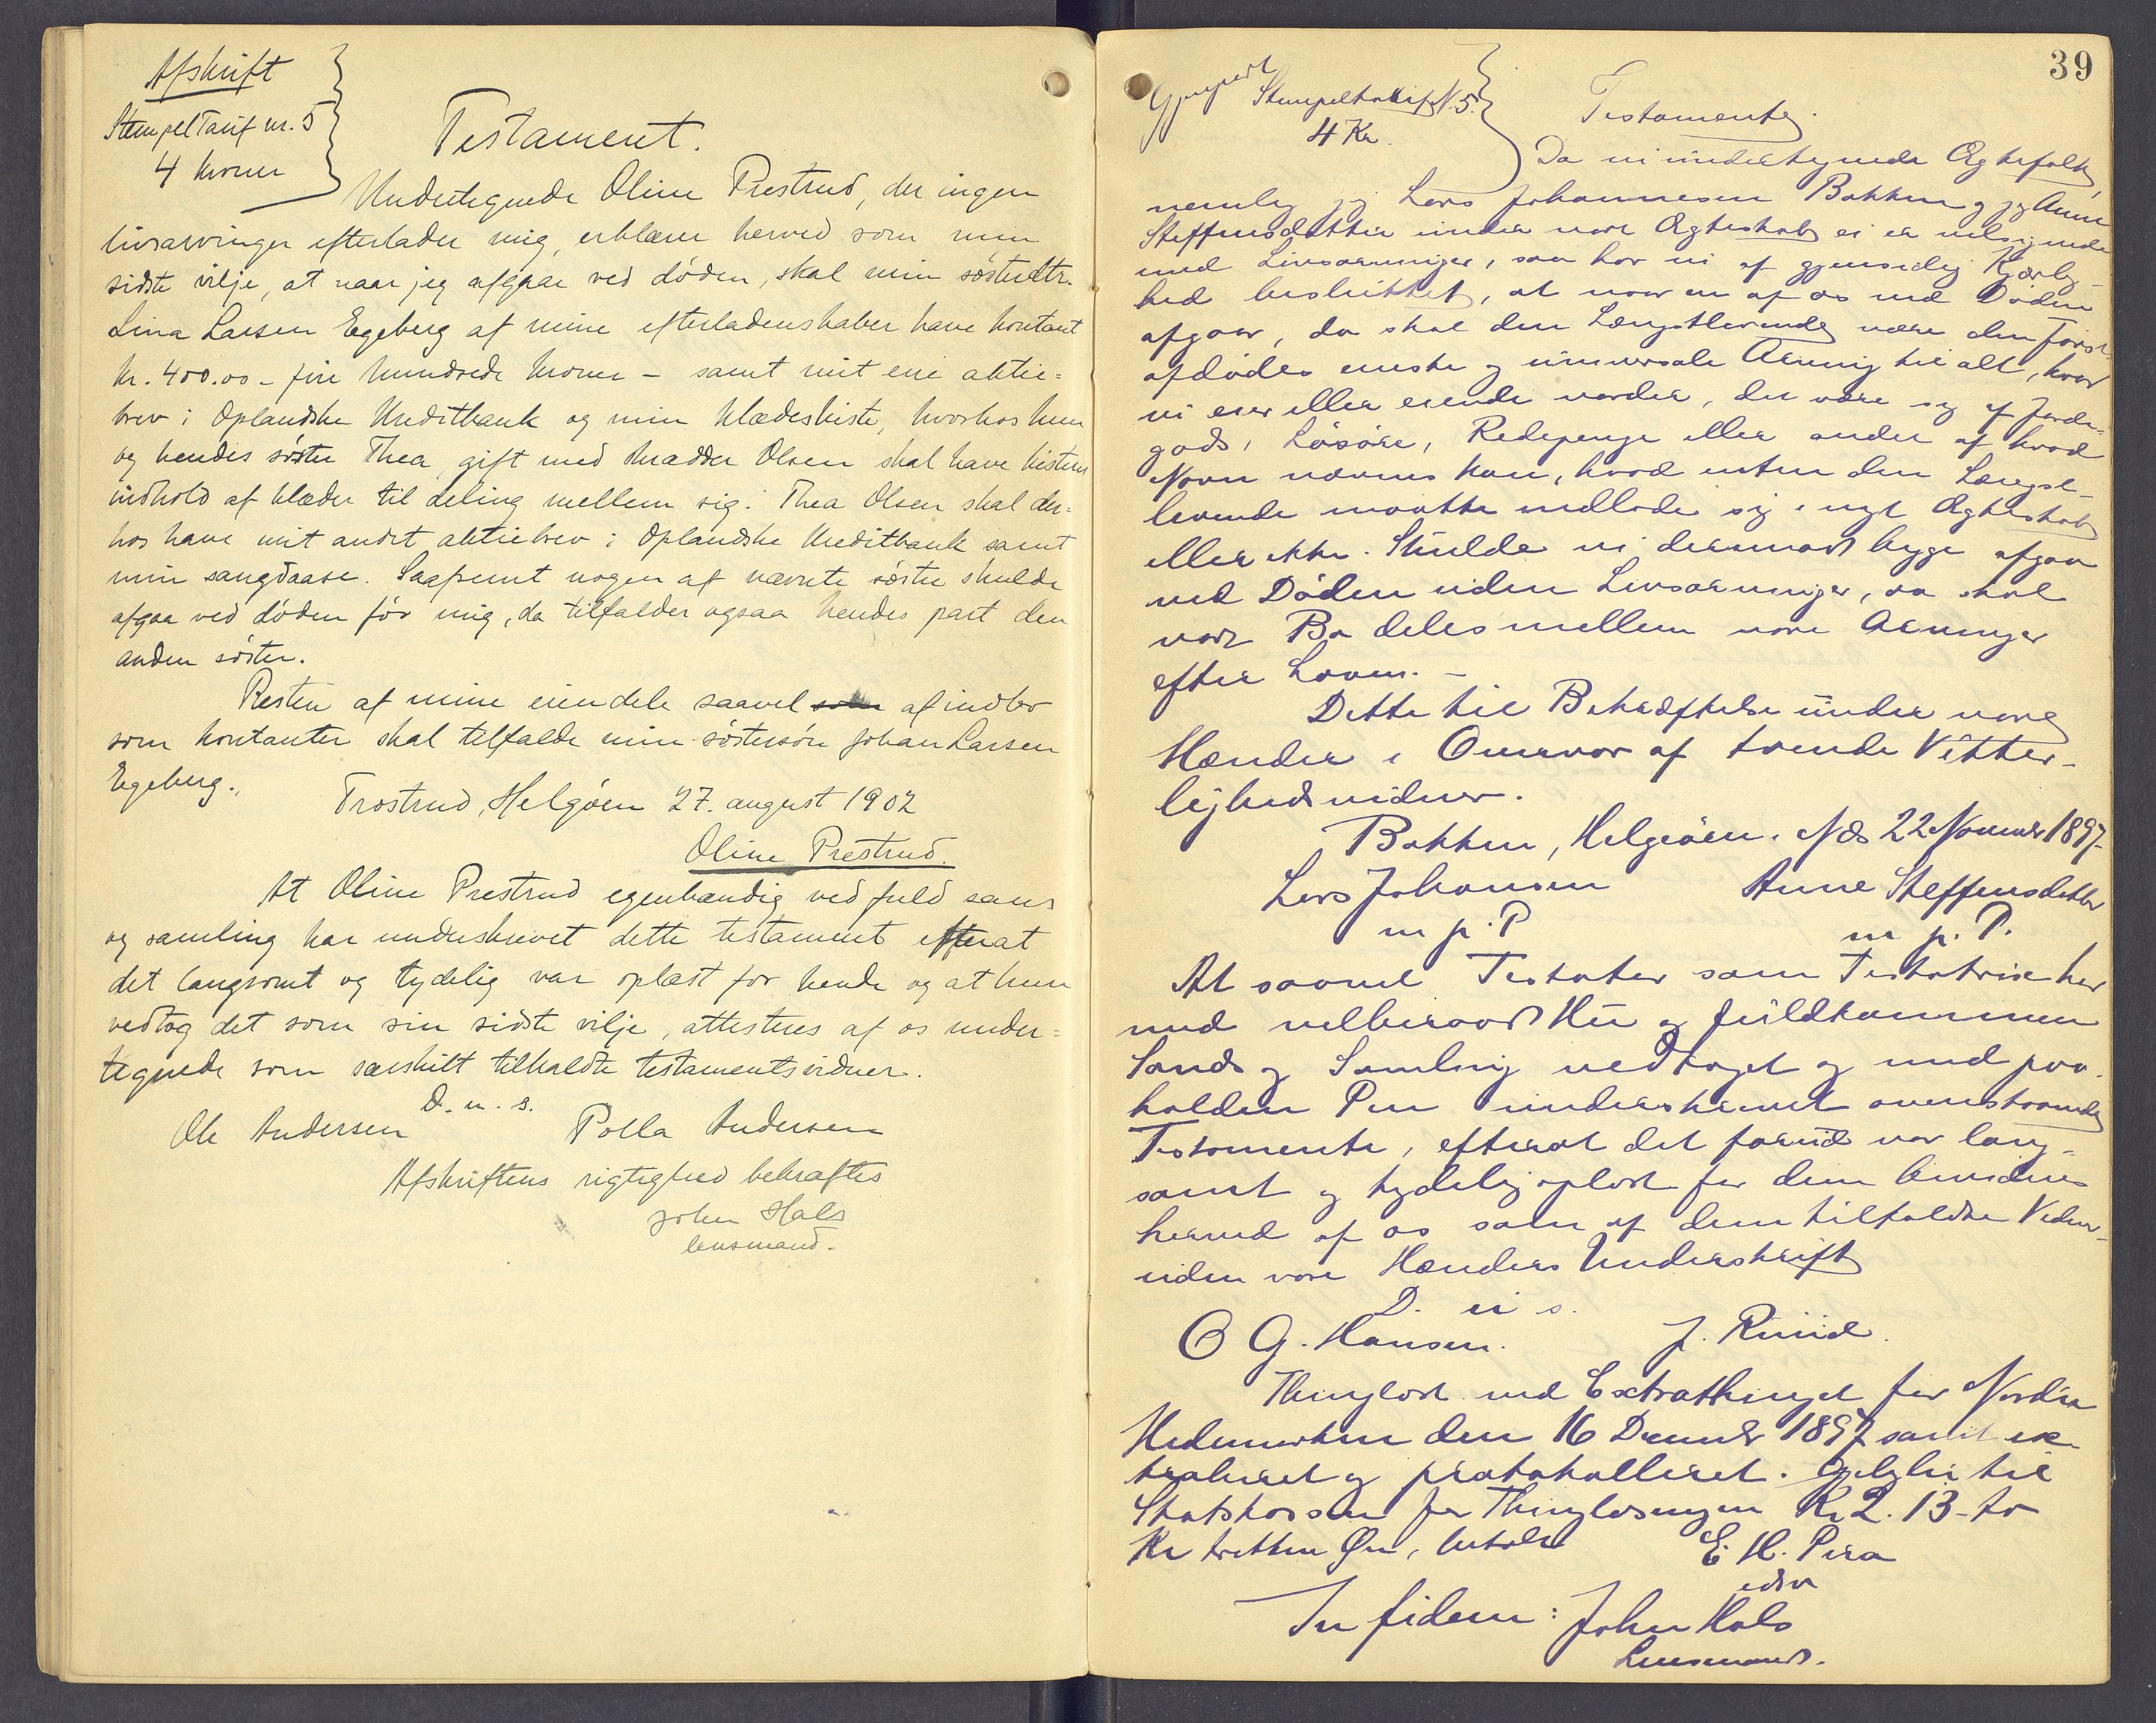 Afskrift
Stempel Tarif nr. 5
4 kroner
Testament.
Undertegnede Oline Prestrud, der ingen
livsarvinger efterlader mig, erklærer herved som min
sidste vilje, at naar jeg afgaar ved døden, skal min søsterdtr.
Lina Larsen Egeberg af mine efterladenskaber have kontant
kr. 400.00 – fire hundrede kroner – samt mit ene aktie=
brev i Oplandske Kreditbank og min klædeskiste, hvorhos hun
og hendes søster Thea gift med skrædder Olsen skal have kistens
indhold af klæder til deling mellem sig. Thea Olsen skal der=
hos have mit andet aktiebrev i Oplandske Kreditbank samt
min sangdaase. Saafremt nogen af nævnte søstre skulde
afgaa ved døden før mig, da tilfalder ogsaa hendes part den
anden søster.
Resten af mine eiendele saavel som af indbo
som kontanter skal tilfalde min søstersøn Johan Larsen
Egeberg.
Trostrud, Helgøen 27. august 1902
Oline Prestrud.
At Oline Prestrud egenhændig ved fuld sans
og samling har underskrevet dette testament efterat
det langsomt og tydelig var oplæst for hende og at hun
vedtog det som sin sidste vilje, attesteres af os under=
tegnede som særskilt tilkaldte testamentsvidner.
D. u. s.
Ole Andersen Polla Andersen
Afskriftens rigtighed bekræftes
John Hals
lensmand.
39
Gjenpart Stempeltakst N. 5.
4 Kr.
Testamente.
Da vi undertegnede Ægtefolk,
nemlig jeg Lars Johannesen Bakken og jeg Anne
Steffensdatter under vort Ægteskab ei er velsignede
med Livsarvinger, saa har vi af gjensidig Kjærlig-
hed besluttet, at naar en af os ved Døden
afgaar, da skal den Længstlevende være den først
afdødes eneste og universale Arving til alt, hvad
vi eier eller eiende vorder, det være sig af Jorde-
gods, Løsøre, Redepenge eller andet af hvad
Navn nævnes kan, hvad enten den Længst-
levende maatte indlade sig i nyt Ægteskab
eller ikke. Skulde vi derimod begge afgaa
ved Døden uden Livsarvinger, saa skal
vort Bo deles mellem vore Arvinger
efter Loven. –
Dette til Bekræftelse under vore
Hænder i Overvær af tvende Vitter-
lighedsvidner.
Bakken, Helgeøen. Næs 22 November 1897
Lars Johansen Anne Steffensdatter
m. p. P m. p. P.
At saavel Testator som Testatrix har
med velberaad Hu og fuldkommen
Sands og Samling vedtaget og med paa-
holden Pen underskrevet ovenstaaende
Testamente, efterat det forud var lang-
samt og tydelig oplæst for dem bevidnes
herved af os som af dem tilkaldte Vidner
under vore Hænders Underskrift
D. u s.
O G. Hansen. J. Ruud.
Thinglæst ved Extrathinget for Nordre
Hedemarken den 16 December 1897 samt ex-
traheret og protokolleret. Gebyhr til
Statskassen for Thinglæsningen Kr 2. 13 – to
Kr tretten Øre, betalt E. H.
In fidem: John Hals
Lensmand.